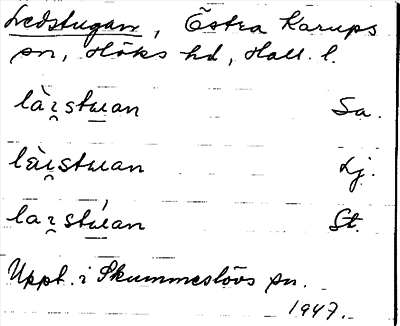 Ledstugan, Östra Karups
sn, Höks hd, Hall. l.
làɪ̯stɯan Sa.
làɪ̯stɯan Lj.
laɪ̯stɯ́an St.
Uppt. i Skummeslövs sn.
1947.